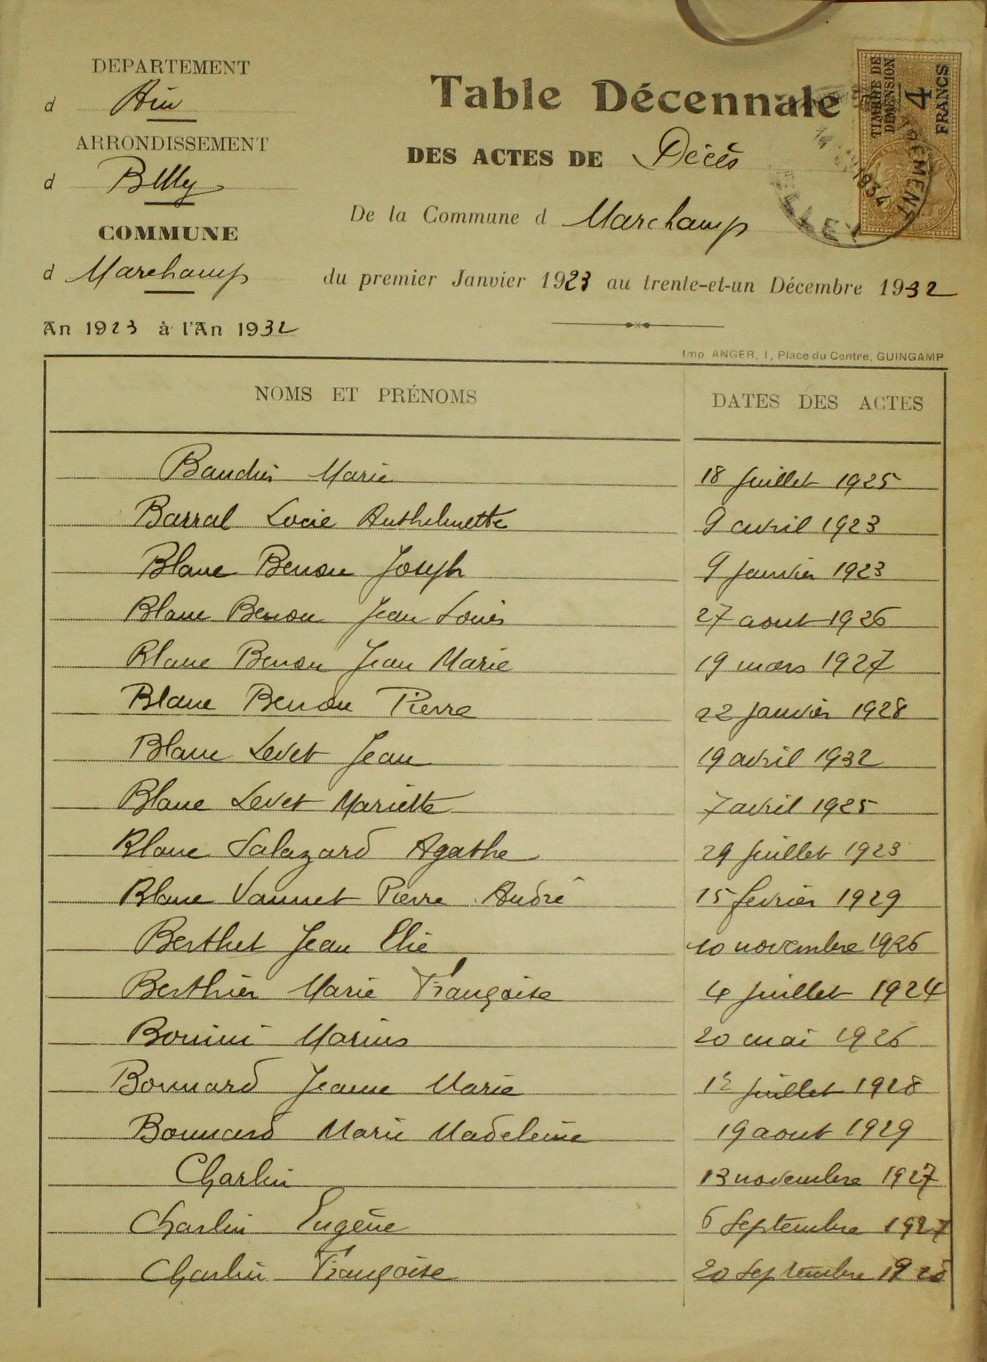 DEPARTEMENT
d Ain
ARRONDISSEMENT
d Belley
COMMUNE
d Marchamp
An 1923 à l'An 1932
Table Décennale
DES ACTES DE Décès
De la Commune d Marchamp
du premier Janvier 1923 au trente-et-un Décembre 1932
TIMBRE DE DIMENSION
4 FRANCS
1934
Imp. ANGER, 1, Place du Centre, GUINGAMP
NOMS ET PRÉNOMS DATES DES ACTES
Baudin Marie 18 juillet 1925
Barral Locie Anthelmette 9 avril 1923
Blanc Benon Joseph 9 janvier 1923
Blanc Benon Jean Louis 27 aout 1926
Blanc Benon Jean Marie 19 mars 1927
Blanc Benon Pierre 22 janvier 1928
Blanc Levet Jean 19 avril 1932
Blanc Levet Mariette 7 avril 1925
Blanc Salazard Agathe 29 juillet 1923
Blanc Vannet Pierre André 15 février 1929
Berthet Jean Elie 10 novembre 1926
Berthier Marie Françoise 4 juillet 1924
Bonini Marius 20 mai 1926
Bonnard Jeanne Marie juillet 1928
Bonnard Marie Madeleine 19 aout 1929
Charlin 13 novembre 1927
Charlin Eugène 6 Septembre 1927
Charlin Françoise 20 Septembre 1928